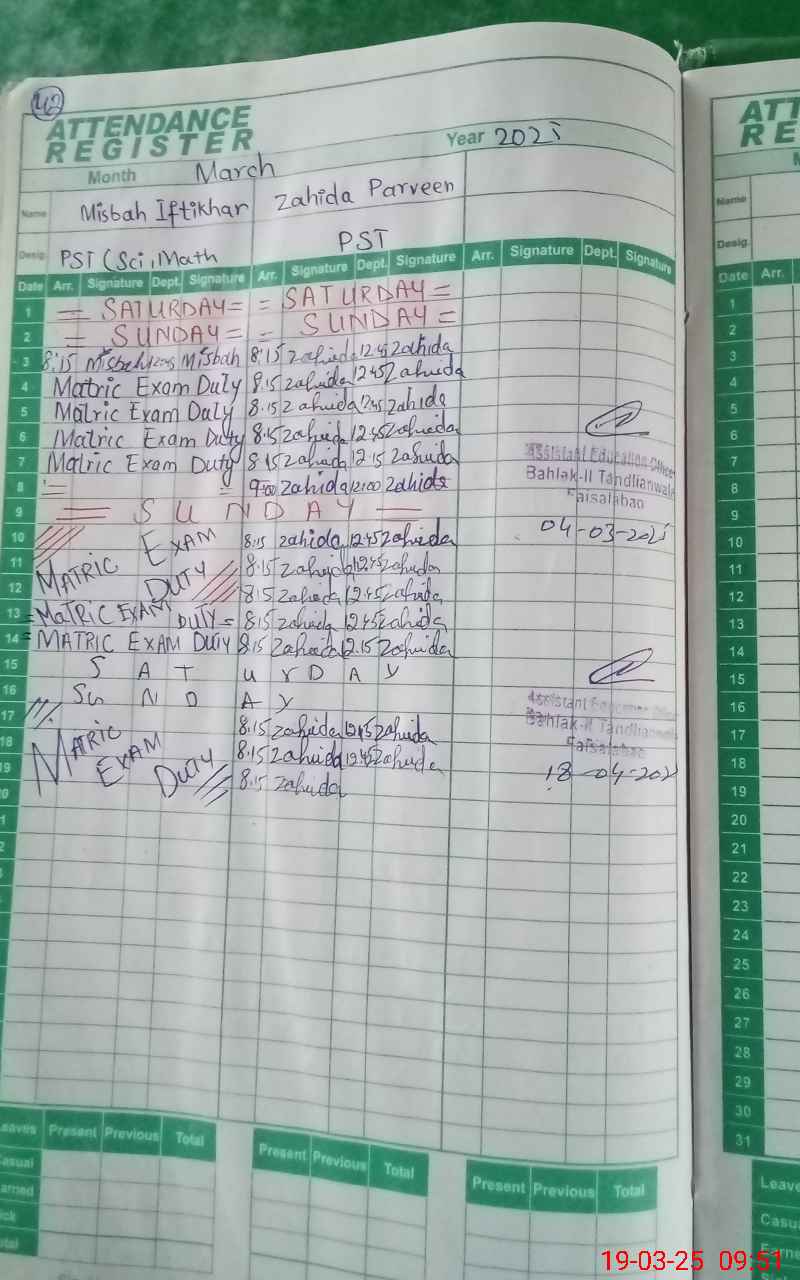 42
ATTENDANCE
REGISTER
Year 2025
Month March
Name Misbah Iftikhar Zahida Parveen
Desig. PST (Sci, Math PST
Date Arr. Signature Dept. Signature Arr. Signature Dept. Signature Arr. Signature Dept. Signature
1 = SATURDAY = = SATURDAY =
2 = SUNDAY = = SUNDAY =
3 8:15 Misbah Misbah 8:15 Zahida 12:45 Zahida
4 Matric Exam Duty 8:15 Zahida 12:45 Zahida
5 Matric Exam Duty 8:15 Zahida 12:45 Zahida
6 Matric Exam Duty 8:15 Zahida 12:45 Zahida
7 Matric Exam Duty 8:15 Zahida 12:15 Zahida
Assistant Education Officer
Bahlak-II Tandlianwala
Faisalabad
8 = = 9:00 Zahida 12:00 Zahida
9 = SUNDAY =
04-03-2025
10 MATRIC EXAM DUTY 8:15 Zahida 12:45 Zahida
11 8:15 Zahida 12:45 Zahida
12 8:15 Zahida 12:45 Zahida
13 = MATRIC EXAM DUTY = 8:15 Zahida 12:45 Zahida
14 = MATRIC EXAM DUTY 8:15 Zahida 12:15 Zahida
15 SATurDAY
16 SuNDAY
Assistant Education Officer
Bahlak-II Tandlianwala
Faisalabad
17 MATRIC EXAM DUTY 8:15 Zahida 12:45 Zahida
18 8:15 Zahida 12:45 Zahida
18-04-202
19 8:15 Zahida
Leaves Present Previous Total Present Previous Total Present Previous Total
Casual
Earned
Sick
Total
ATT
RE
Name
Desig.
Date Arr.
1
2
3
4
5
6
7
8
9
10
11
12
13
14
15
16
17
18
19
20
21
22
23
24
25
26
27
28
29
30
31
Leave
Casu
Earne
19-03-25 09:51